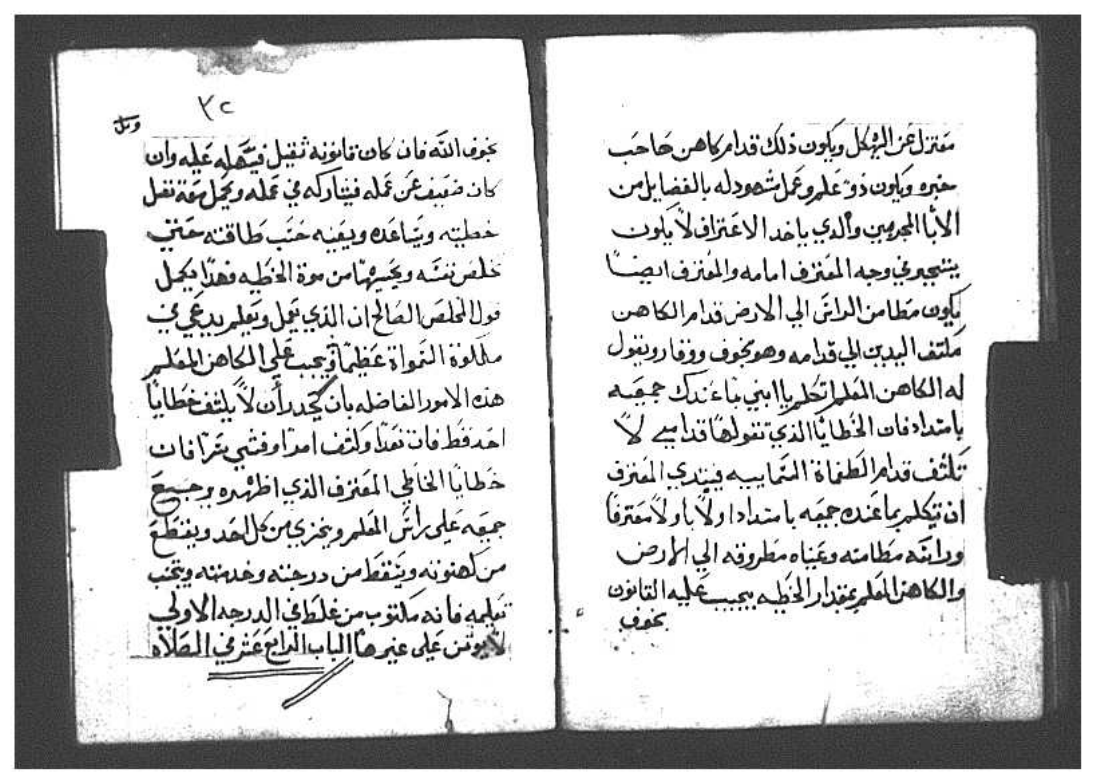 معتزل عن الهيكل ويكون ذلك قدام كاهن صاحب
خبره ويكون ذو علم وعمل مشهود له بالفضايل من
الابا المجربين والذي ياخد الاعتراف لا يكون
في وجه المعترف امامه والمعترف ايضًا
يكون مطامن الراس الي الارض قدام الكاهن
ملتف اليدين الي قدامه وهو بخوف ووقار ويقول
له الكاهن المعلم تكلم يا ابني بما عندك جميعه
بامتداد فان الخطايا الذي تقولها قدامي لا
تكشف قدام الطغماة السمايية فيبتدي المعترف
ان يتكلم بما عنده جميعه بامتداد اولاً باولاً معترفًا
وراسه مطامنه وعيناه مطروقه الي الارض
والكاهن المعلم بمقدار الخطيه يجيب عليه القانون
بخوف
٣٢
بخوف الله فان كان قانونه ثقيل فيسهله عليه وان
كان ضعيف عن عمله فيشاركه في عمله ويحمل معه ثقل
خطيته ويساعده ويعينه حسب طاقته حتي
خلص نفسه ويحييها من موة الخطيه فهذا يكمل
قول المخلص الصالح ان الذي يعمل ويعلم يدعي في
ملكوة السمواة عظيمًا ويجب علي الكاهن المعلم
هذه الامور الفاضله بان يحدر أن لا يكشف خطايا
احد قط فان تعدا وكشف امرًا وفشي سرًا فان
خطايا الخاطي المعترف الذي اظهره يرجع
جميعه علي راس المعلم وينخزي من كل احد وينقطع
من كهنوته ويسقط من درجته وخدمته ويتجنب
تعلمه فانه مكتوب من غلط في الدرجه الاولي
لا يوتمن علي غيرها الباب الرابع عشر في الصلاه